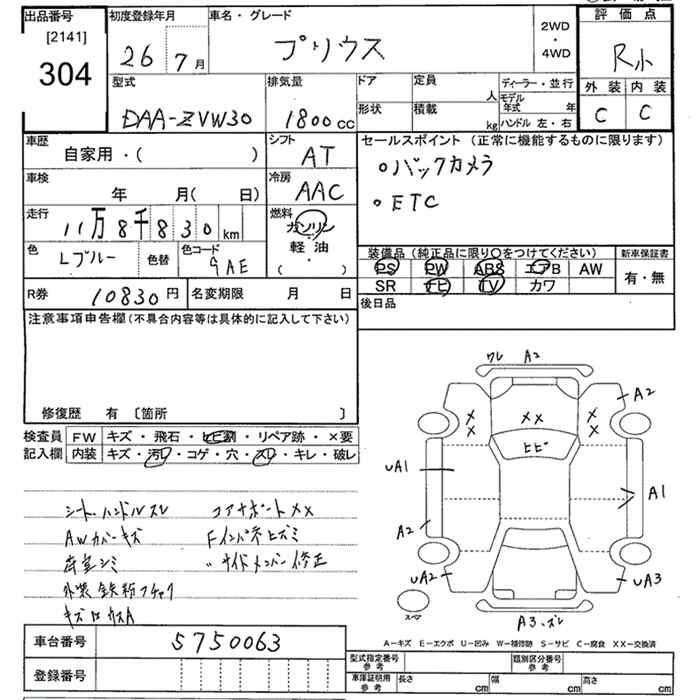 出品番号
[2141]
304
初度登録年月
26 7月
車名・グレード
プリウス
2WD
・
4WD
評価点
R小
外装 内装
C C
型式
DAA-ZVW30
排気量
1800cc
ドア
形状
定員
人
積載
kg
ディーラー・並行
モデル年式 年
ハンドル 左・右
車歴
自家用・( )
シフト
AT
車検
年 月( 日)
冷房
AAC
走行
11万8千830km
燃料
ガソリン
軽油
・
( )
色
Lブルー
色替
色コード
9AE
セールスポイント (正常に機能するものに限ります)
○バックカメラ
○ETC
装備品(純正品に限り○をつけてください)
PS PW ABS エアB AW
SR ナビ TV カワ
新車保証書
有・無
R券 10830円
名変期限 月 日
後日品
注意事項申告欄(不具合内容等は具体的に記入して下さい)
修復歴 有 〔箇所 〕
検査員
記入欄
FW キズ・飛石・ヒビ割・リペア跡・×要
内装 キズ・汚レ・コゲ・穴・スレ・キレ・破レ
シート、ハンドルスレ
AWカバーキズ
荷室シミ
外装鉄粉フチャク
コアサポートXX
Fインパネヒズミ
〃サイドメンバー修正
ワレ A2
A2
XX
XX
XX
ヒビ
UA1
A1
A2
UA2
UA3
スペア
A3.ズレ
A-キズ E-エクボ U-凹み W-補修跡 S-サビ C-腐食 XX-交換済
車台番号 5750063
登録番号
型式指定番号
参考
類別区分番号
参考
車庫証明用
参考
長さ cm
幅 cm
高さ cm